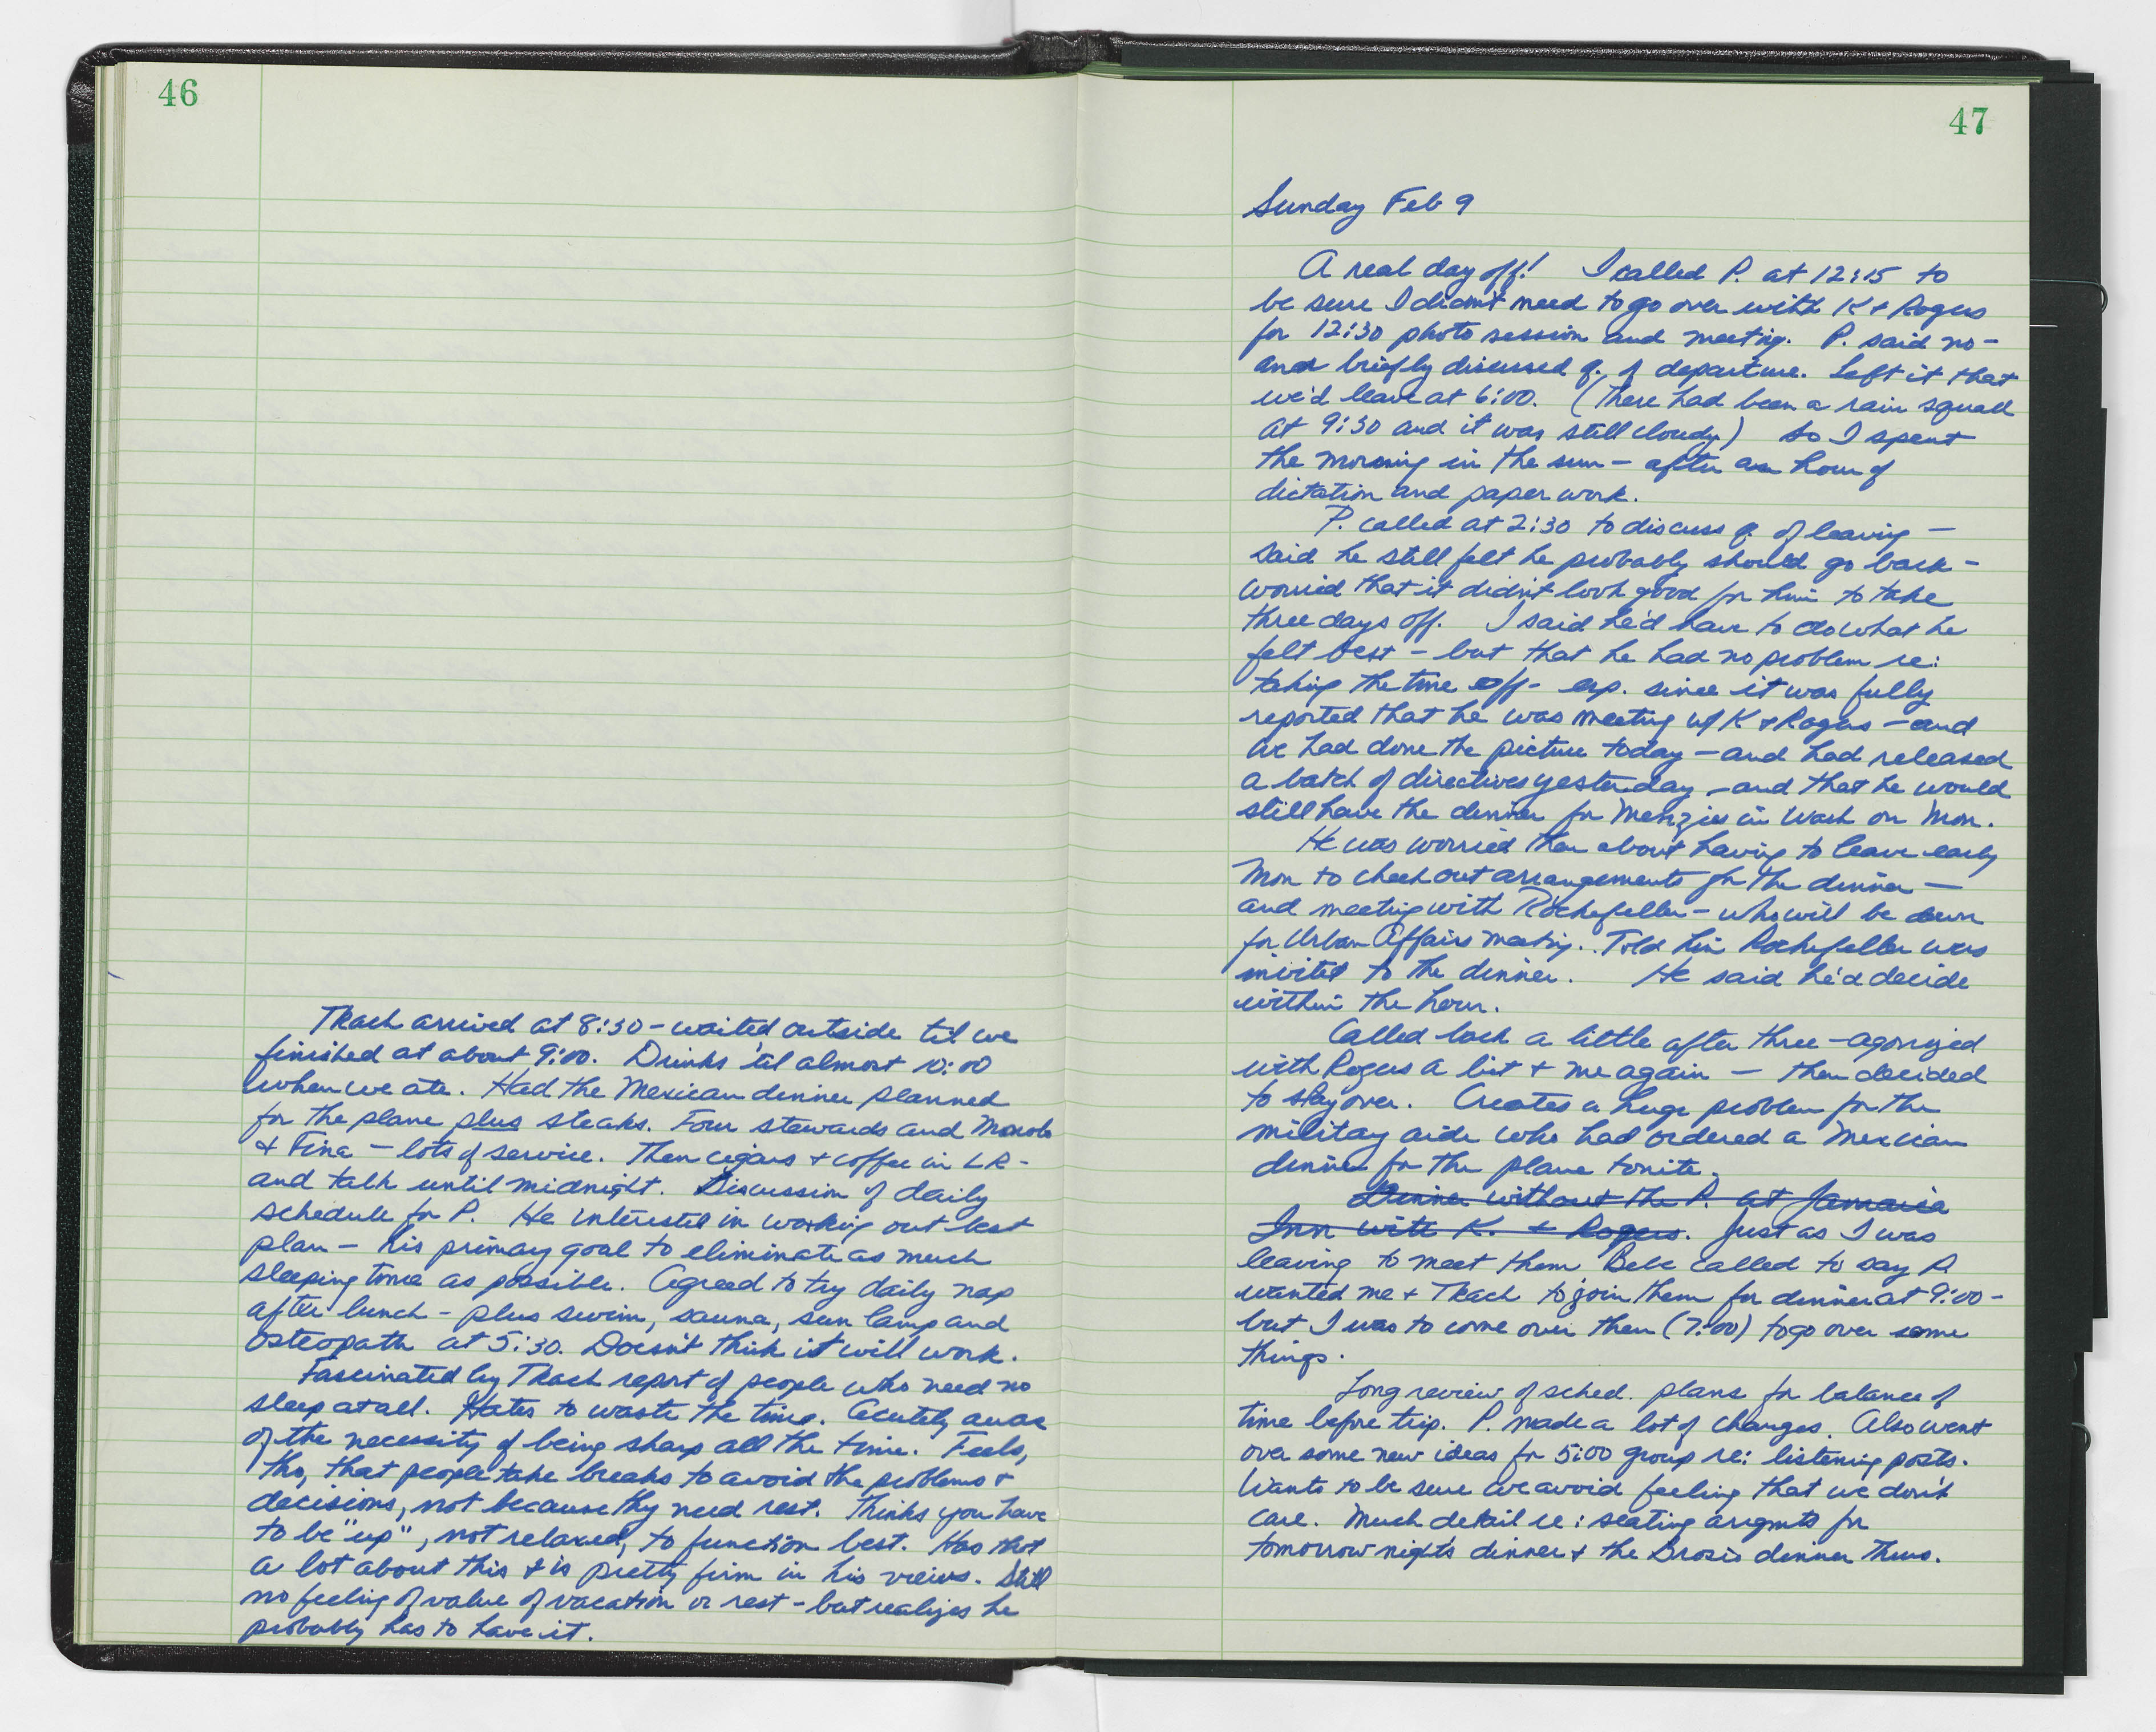 46
Tkach arrived at 8:30 - waited outside til we
finished at about 9:00. Drinks 'til almost 10:00
when we ate. Had the Mexican dinner planned
for the plane plus steaks. Four stewards and Manolo
& Fina - lots of service. Then cigars & coffee in LR -
and talk until midnight. Discussion of daily
schedule for P. He interested in working out best
plan - his primary goal to eliminate as much
sleeping time as possible. Agreed to try daily nap
after lunch - plus swim, sauna, sun lamp and
osteopath at 5:30. Doesn't think it will work.
Fascinated by Tkach report of people who need no
sleep at all. Hates to waste the time. Acutely aware
of the necessity of being sharp all the time. Feels,
tho, that people take breaks to avoid the problems &
decisions, not because thy need rest. Thinks you have
to be "up", not relaxed, to function best. Has thot
a lot about this & is pretty firm in his views. Still
no feeling of value of vacation or rest - but realizes he
probably has to have it.
47
Sunday Feb 9
A real day off! I called P. at 12:15 to
be sure I didn't need to go over with K & Rogers
for 12:30 photo session and meeting. P. said no -
and briefly discussed q. of departure. Left it that
we'd leave at 6:00. (There had been a rain squall
at 9:30 and it was still cloudy) So I spent
the morning in the sun - after an hour of
dictation and paper work.
P. called at 2:30 to discuss q. of leaving -
said he still felt he probably should go back -
worried that it didn't look good for him to take
three days off. I said he'd have to do what he
felt best - but that he had no problem re:
taking the time off - esp. since it was fully
reported that he was meeting w/ K & Rogers - and
we had done the picture today - and had released
a batch of directives yesterday - and that he would
still have the dinner for Menzies in Wash on Mon.
He was worried then about having to leave early
Mon to check out arrangements for the dinner -
and meeting with Rockefeller - who will be down
for Urban Affairs meeting. Told him Rockefeller was
invited to the dinner. He said he'd decide
within the hour.
Called back a little after three - agonized
with Rogers a bit & me again - then decided
to stay over. Creates a huge problem for the
military aide who had ordered a Mexican
dinner for the plane tonite.
Dinner without the P. at Jamaica
Inn with K. & Rogers. Just as I was
leaving to meet them Bebe called to say P.
wanted me & Tkach to join them for dinner at 9:00 -
but I was to come over then (7:00) to go over some
things.
Long review of sched. plans for balance of
time before trip. P. made a lot of changes. Also went
over some new ideas for 5:00 group re: listening posts.
Wants to be sure we avoid feeling that we don't
care. Much detail re: seating arrgmts for
tomorrow night's dinner & the Brosio dinner Thurs.